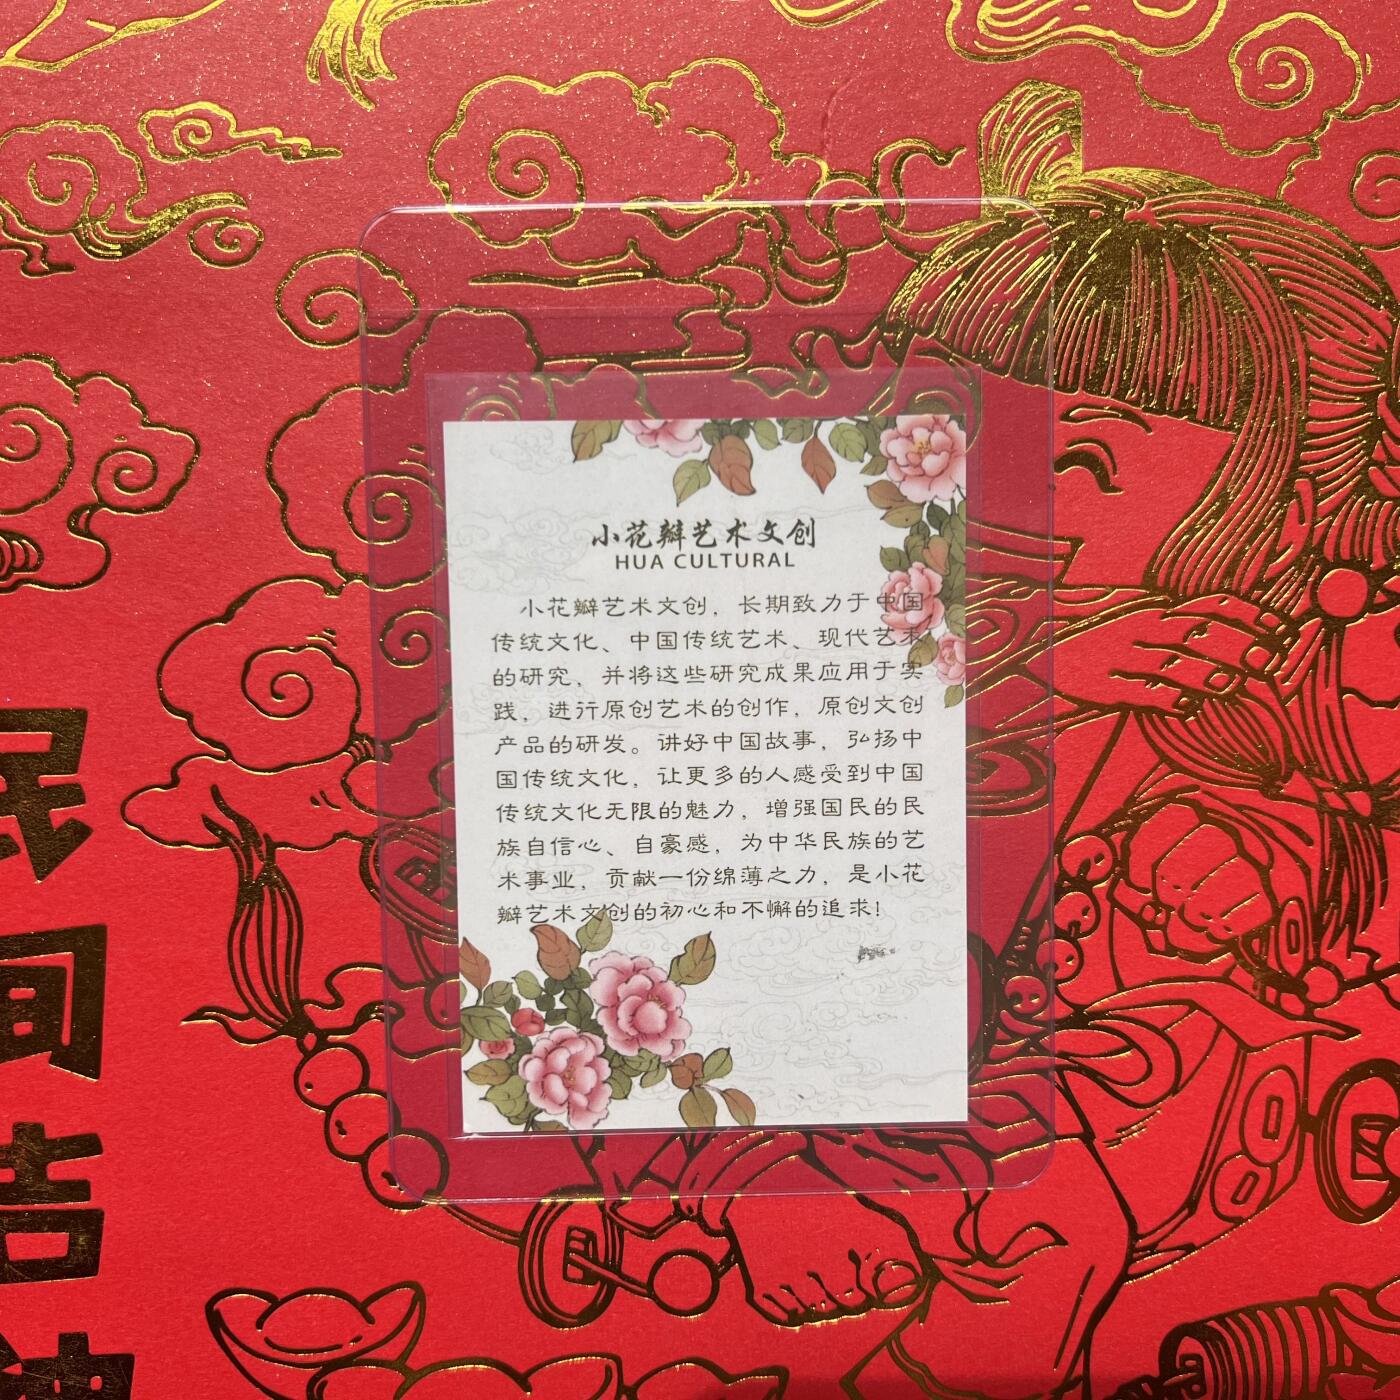 小花瓣艺术文创
HUA CULTURAL
小花瓣艺术文创，长期致力于中国
传统文化、中国传统艺术、现代艺术
的研究，并将这些研究成果应用于实
践，进行原创艺术的创作，原创文创
产品的研发。讲好中国故事，弘扬中
国传统文化，让更多的人感受到中国
传统文化无限的魅力，增强国民的民
族自信心、自豪感，为中华民族的艺
术事业，贡献一份绵薄之力，是小花
瓣艺术文创的初心和不懈的追求！
民间吉神